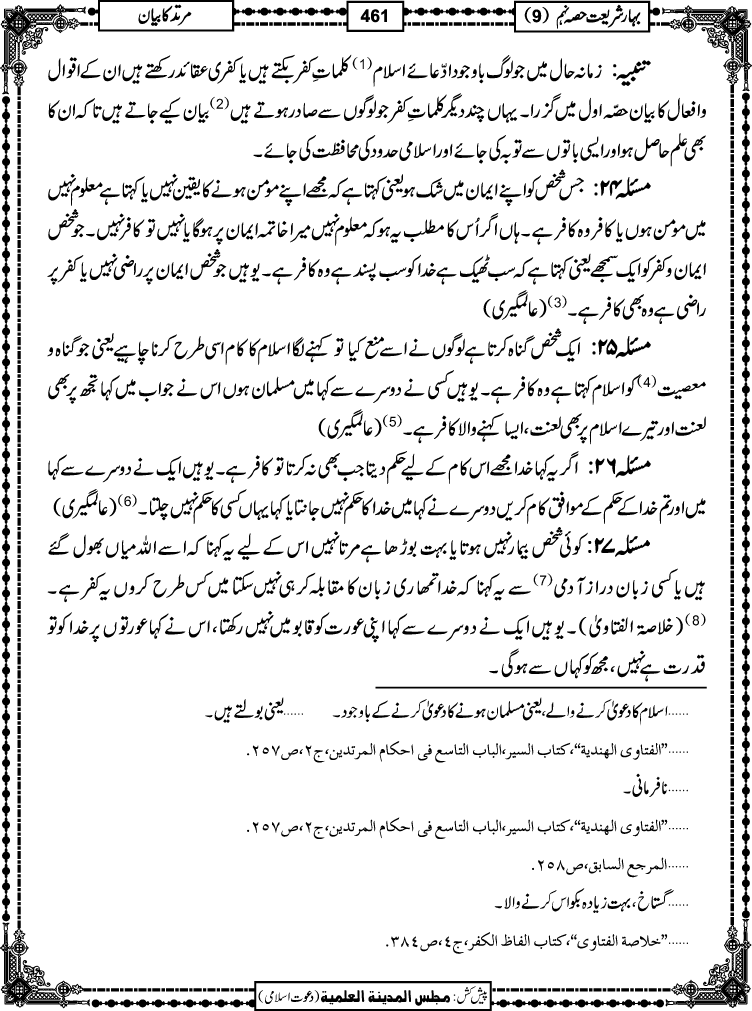 بہار شریعت حصہ نہم (9)
461
مرتد کا بیان
تنبیہ: زمانہ حال میں جو لوگ باوجود ادّعائے اسلام (1) کلماتِ کفر بکتے ہیں یا کفری عقائد رکھتے ہیں ان کے اقوال
وافعال کا بیان حصّہ اول میں گزرا۔ یہاں چند دیگر کلماتِ کفر جو لوگوں سے صادر ہوتے ہیں (2) بیان کیے جاتے ہیں تاکہ ان کا
بھی علم حاصل ہو اور ایسی باتوں سے توبہ کی جائے اور اسلامی حدود کی محافظت کی جائے۔
مسئلہ ۲۴: جس شخص کو اپنے ایمان میں شک ہو یعنی کہتا ہے کہ مجھے اپنے مومن ہونے کا یقین نہیں یا کہتا ہے معلوم نہیں
میں مومن ہوں یا کافر وہ کافر ہے۔ ہاں اگر اُس کا مطلب یہ ہو کہ معلوم نہیں میرا خاتمہ ایمان پر ہوگا یا نہیں تو کافر نہیں۔ جو شخص
ایمان و کفر کو ایک سمجھے یعنی کہتا ہے کہ سب ٹھیک ہے خدا کو سب پسند ہے وہ کافر ہے۔ یوہیں جو شخص ایمان پر راضی نہیں یا کفر پر
راضی ہے وہ بھی کافر ہے۔ (3) (عالمگیری)
مسئلہ ۲۵: ایک شخص گناہ کرتا ہے لوگوں نے اسے منع کیا تو کہنے لگا اسلام کا کام اسی طرح کرنا چاہیے یعنی جو گناہ و
معصیت (4) کو اسلام کہتا ہے وہ کافر ہے۔ یوہیں کسی نے دوسرے سے کہا میں مسلمان ہوں اس نے جواب میں کہا تجھ پر بھی
لعنت اور تیرے اسلام پر بھی لعنت، ایسا کہنے والا کافر ہے۔ (5) (عالمگیری)
مسئلہ ۲۶: اگر یہ کہا خدا مجھے اس کام کے لیے حکم دیتا جب بھی نہ کرتا تو کافر ہے۔ یوہیں ایک نے دوسرے سے کہا
میں اور تم خدا کے حکم کے موافق کام کریں دوسرے نے کہا میں خدا کا حکم نہیں جانتا یا کہا یہاں کسی کا حکم نہیں چلتا۔ (6) (عالمگیری)
مسئلہ ۲۷: کوئی شخص بیمار نہیں ہوتا یا بہت بوڑھا ہے مرتا نہیں اس کے لیے یہ کہنا کہ اسے اللہ میاں بھول گئے
ہیں یا کسی زبان دراز آدمی (7) سے یہ کہنا کہ خدا تمھاری زبان کا مقابلہ کر ہی نہیں سکتا میں کس طرح کروں یہ کفر ہے۔
(8) (خلاصۃ الفتاویٰ)۔ یوہیں ایک نے دوسرے سے کہا اپنی عورت کو قابو میں نہیں رکھتا، اس نے کہا عورتوں پر خدا کو تو
قدرت ہے نہیں، مجھ کو کہاں سے ہوگی۔
......اسلام کا دعویٰ کرنے والے، یعنی مسلمان ہونے کا دعویٰ کرنے کے باوجود۔ ......یعنی بولتے ہیں۔
......”الفتاوی الهندیة“، کتاب السیر، الباب التاسع فی احکام المرتدین، ج۲، ص۲۵۷.
......نافرمانی۔
......”الفتاوی الهندیة“، کتاب السیر، الباب التاسع فی احکام المرتدین، ج۲، ص۲۵۷.
......المرجع السابق، ص۲۵۸.
......گستاخ، بہت زیادہ بکواس کرنے والا۔
......”خلاصة الفتاوی“، کتاب الفاظ الکفر، ج٤، ص۳۸٤.
پیش کش: مجلس المدینة العلمیة (دعوتِ اسلامی)